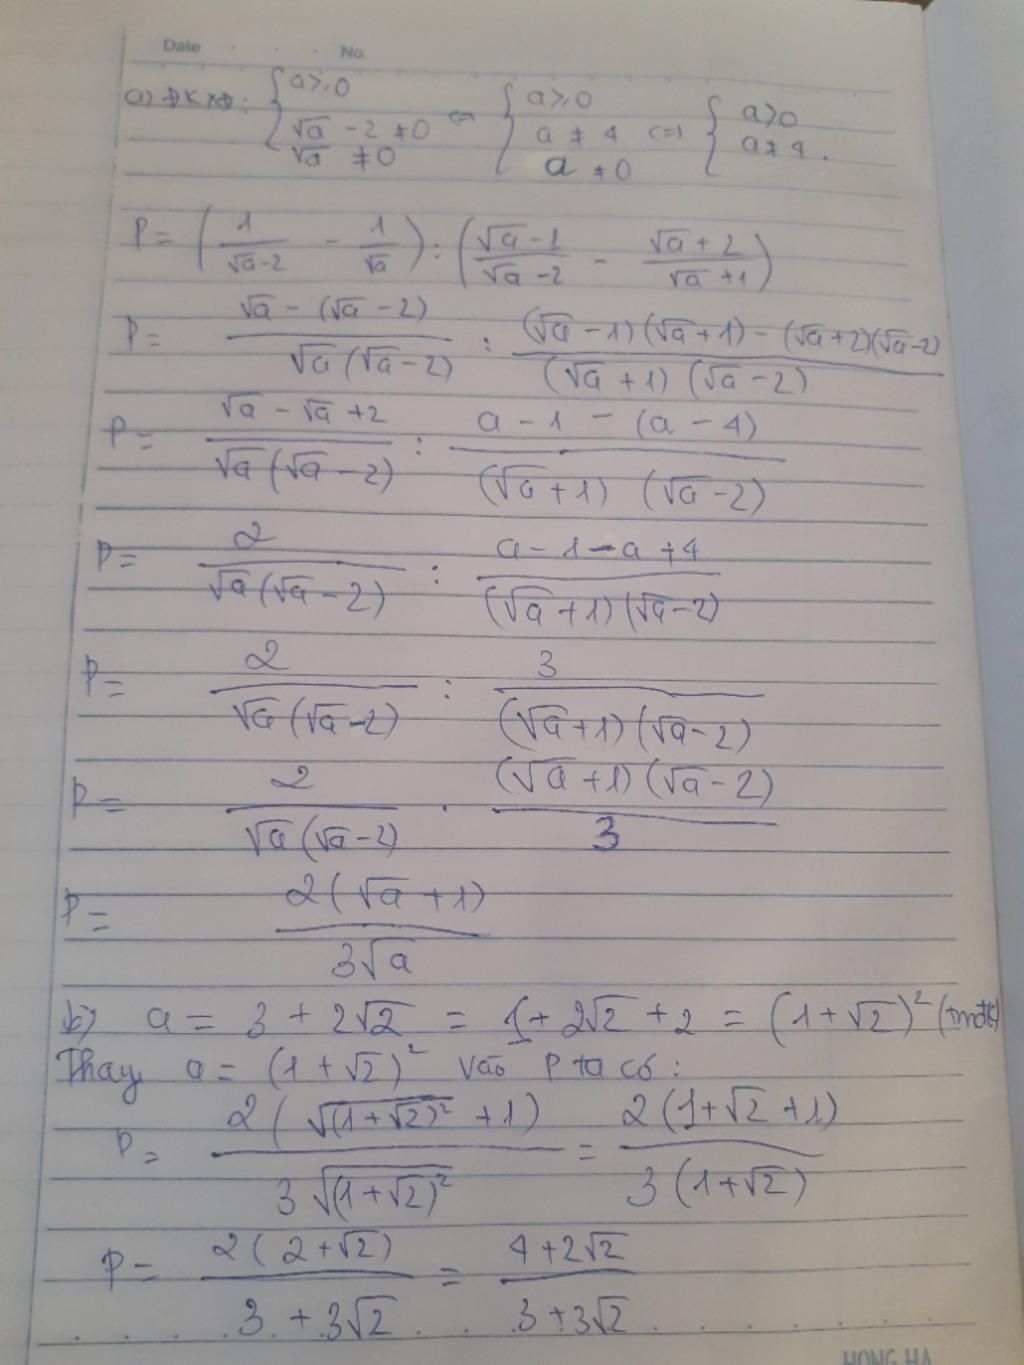 Date . . . No.
a) ĐKXĐ: { a ≥ 0 ; √a - 2 ≠ 0 ; √a ≠ 0 <=> { a ≥ 0 ; a ≠ 4 ; a ≠ 0 <=> { a > 0 ; a ≠ 4 .
P = (1/(√a-2) - 1/√a) : ((√a-1)/(√a-2) - (√a+2)/(√a+1))
P = (√a - (√a-2))/(√a(√a-2)) : ((√a-1)(√a+1) - (√a+2)(√a-2))/((√a+1)(√a-2))
P = (√a - √a + 2)/(√a(√a-2)) : (a - 1 - (a - 4))/((√a+1)(√a-2))
P = 2/(√a(√a-2)) : (a - 1 - a + 4)/((√a+1)(√a-2))
P = 2/(√a(√a-2)) : 3/((√a+1)(√a-2))
P = 2/(√a(√a-2)) . ((√a+1)(√a-2))/3
P = 2(√a+1)/(3√a)
b) a = 3 + 2√2 = 1 + 2√2 + 2 = (1+√2)² (tmđk)
Thay a = (1+√2)² vào P ta có:
P = 2(√(1+√2)² + 1)/(3√(1+√2)²) = 2(1+√2+1)/(3(1+√2))
P = 2(2+√2)/(3+3√2) = (4+2√2)/(3+3√2)
HONG HA